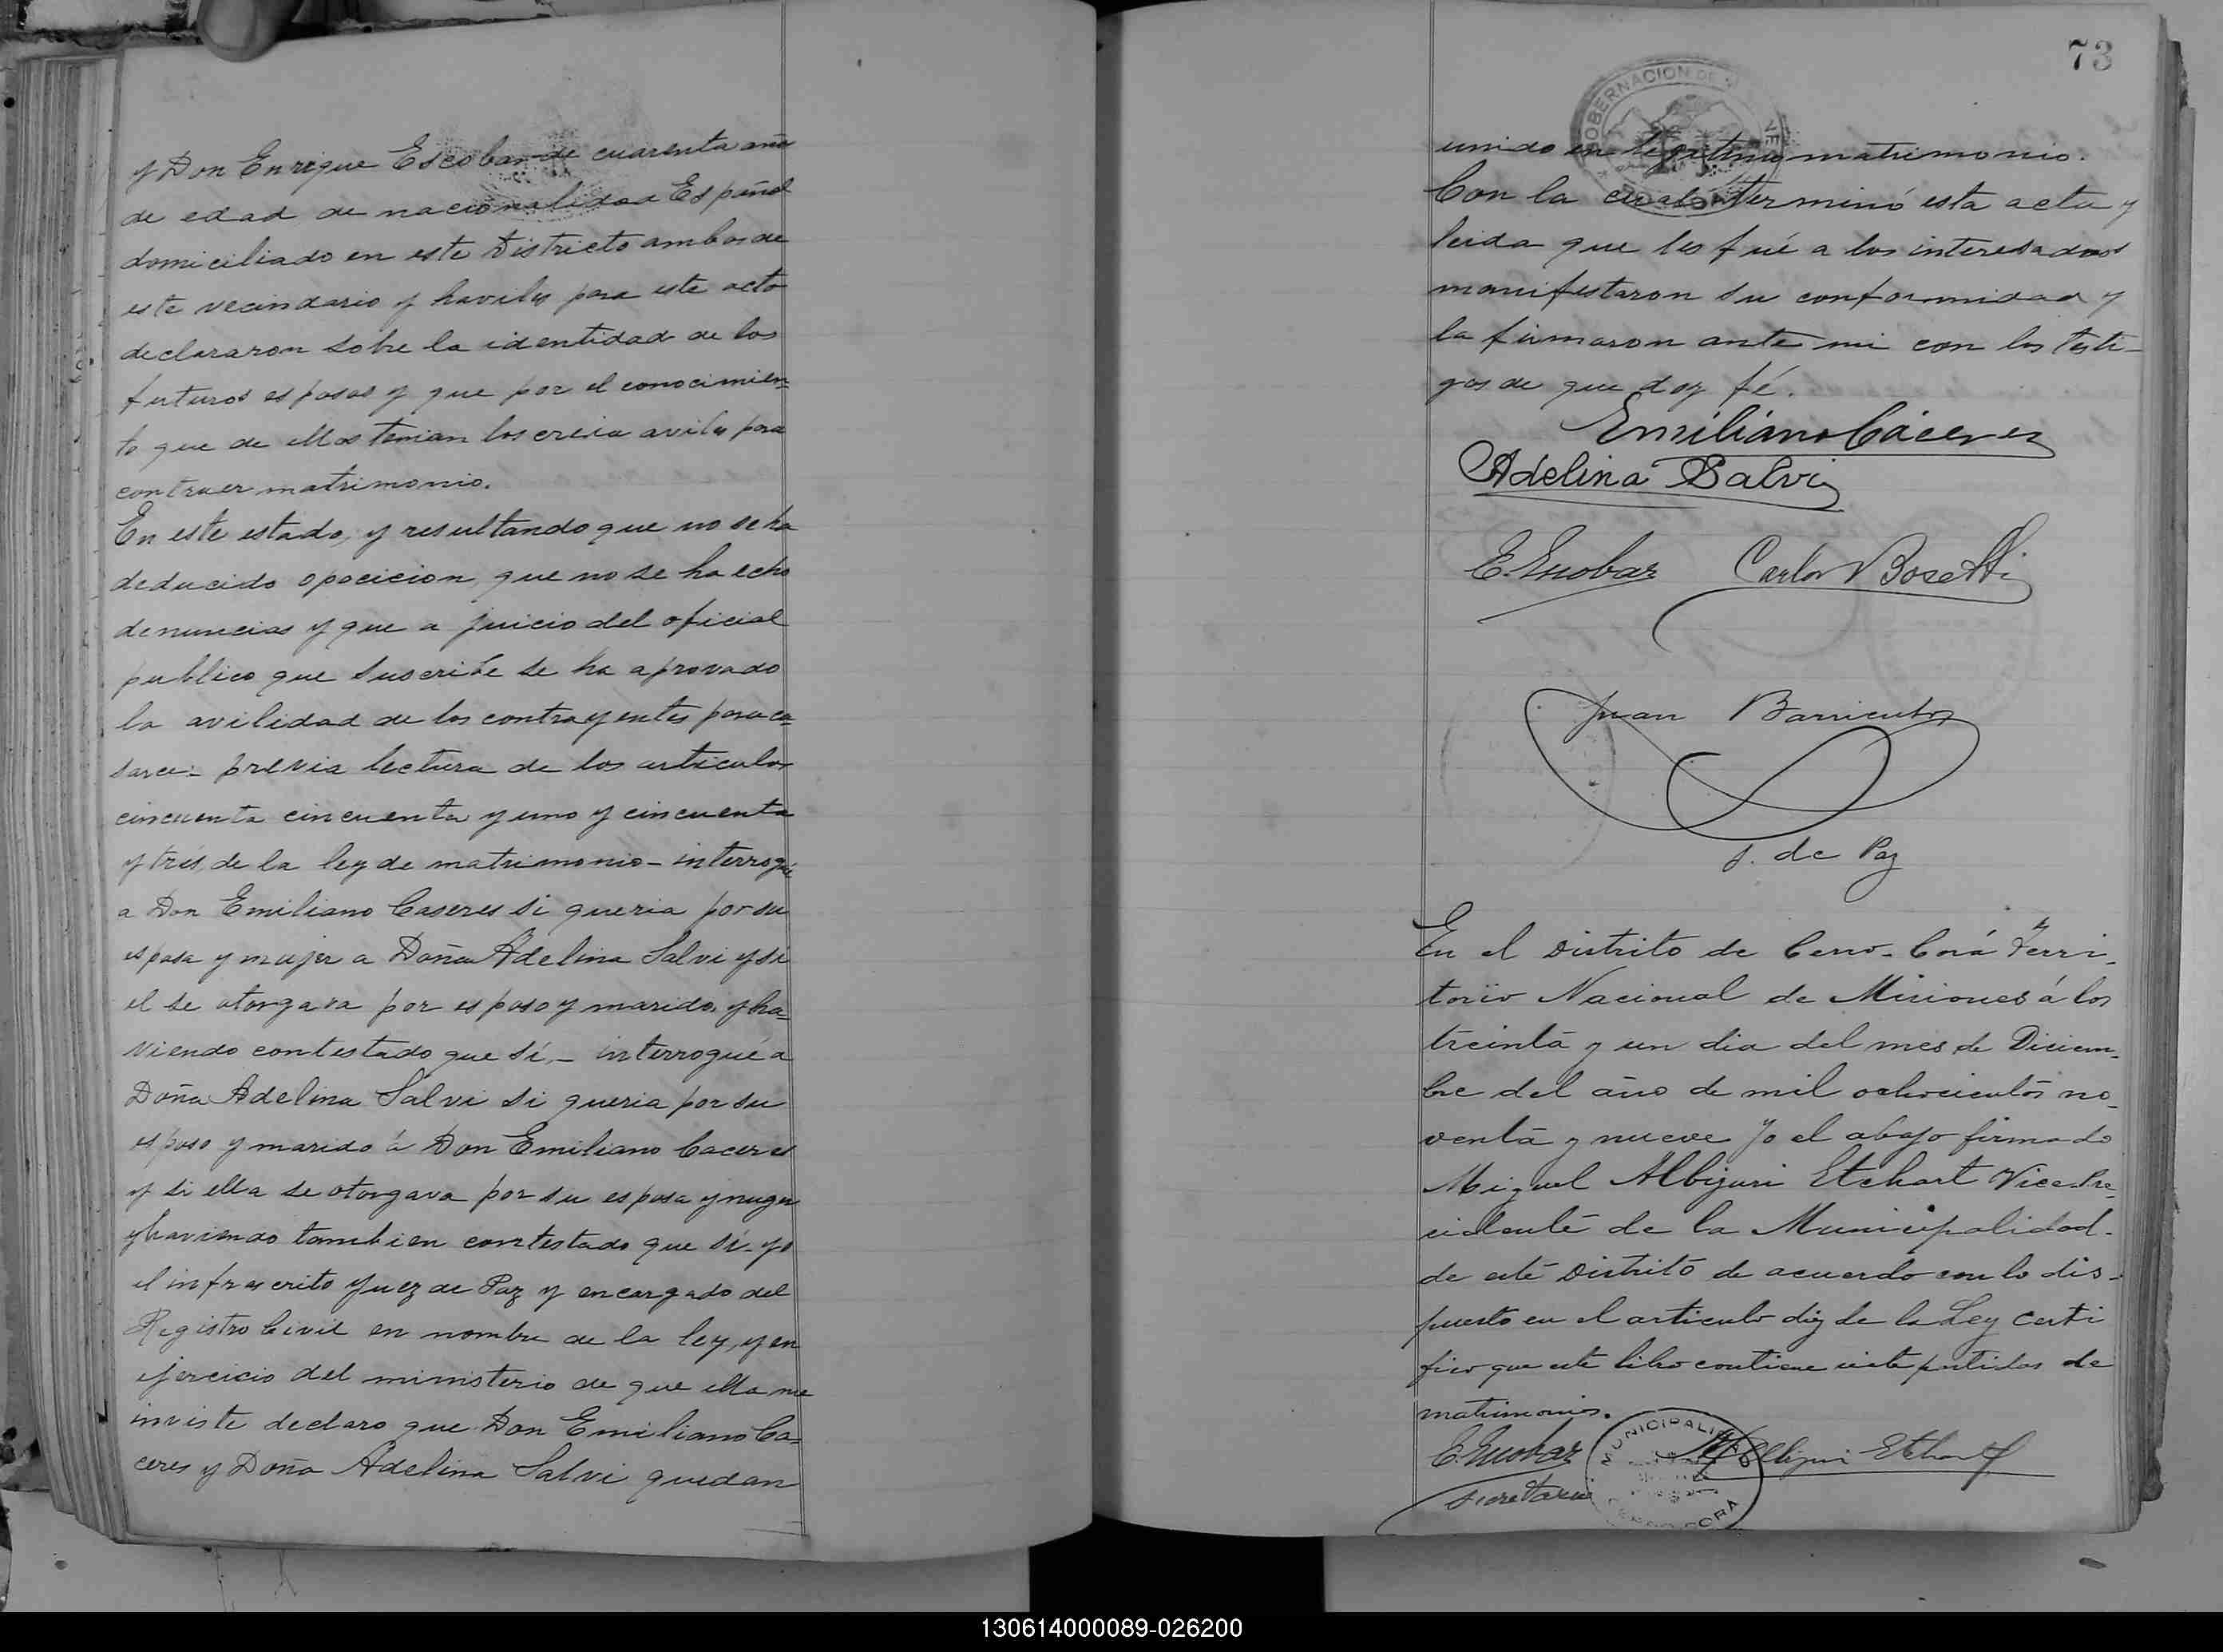 y Don Enrique Escobar de cuarenta años
de edad de nacionalidad Español
domiciliado en este Districto ambos de
este vecindario y haviles para este acto
declararon sobre la identidad de los
futuros esposos y que por el conocimien=
to que de ellos tenian los creia aviles para
contraer matrimonio.
En este estado, y resultando que no se ha
deducido opocicion, que no se ha echo
denuncias y que a juicio del oficial
publico que suscribe se ha aprovado
la avilidad de los contrayentes para ca=
sarce- previa lectura de los articulos
cincuenta cincuenta y uno y cincuenta
y tres, de la ley de matrimonio- interrogué
a Don Emiliano Caseres si queria por su
esposa y mujer a Doña Adelina Salvi y si
el se otorgava por esposo y marido, y ha=
viendo contestado que sí,- interrogué a
Doña Adelina Salvi si queria por su
esposo y marido á Don Emiliano Caceres
y si ella se otorgava por su esposa y muger
y haviendo tambien contestado que sí- yo
el infrascrito Juez de Paz y encargado del
Registro Civil en nombre de la ley, y en
ejercicio del ministerio de que ella me
inviste declaro que Don Emiliano Ca=
ceres y Doña Adelina Salvi quedan
73
GOBERNACION DE
unido en legitimo matrimonio.
Con la cual terminó esta acta y
leida que les fué a los interesados
manifestaron su conformidad y
la firmaron ante mi con los testi-
gos de que doy fé.
Emiliano Cáceres
Adelina Salvi
E. Escobar Carlos Bosetti
Juan Barrientos
J. de Paz
En el Distrito de Cerro-Corá Terri-
torio Nacional de Misiones á los
treinta y un dia del mes de Diciem-
bre del año de mil ochocientos no-
venta y nueve Yo el abajo firmado
Miguel Albizuri Etchart Vice-Pre-
cidente de la Municipalidad
de este Distrito de acuerdo con lo dis-
puesto en el articulo diz de la Ley Certi
fico que este libro contiene siete partidas de
matrimonios.
E. Escobar M. Albizuri Etchart
Secretario
MUNICIPALIDAD
CERRO CORA
130614000089-026200